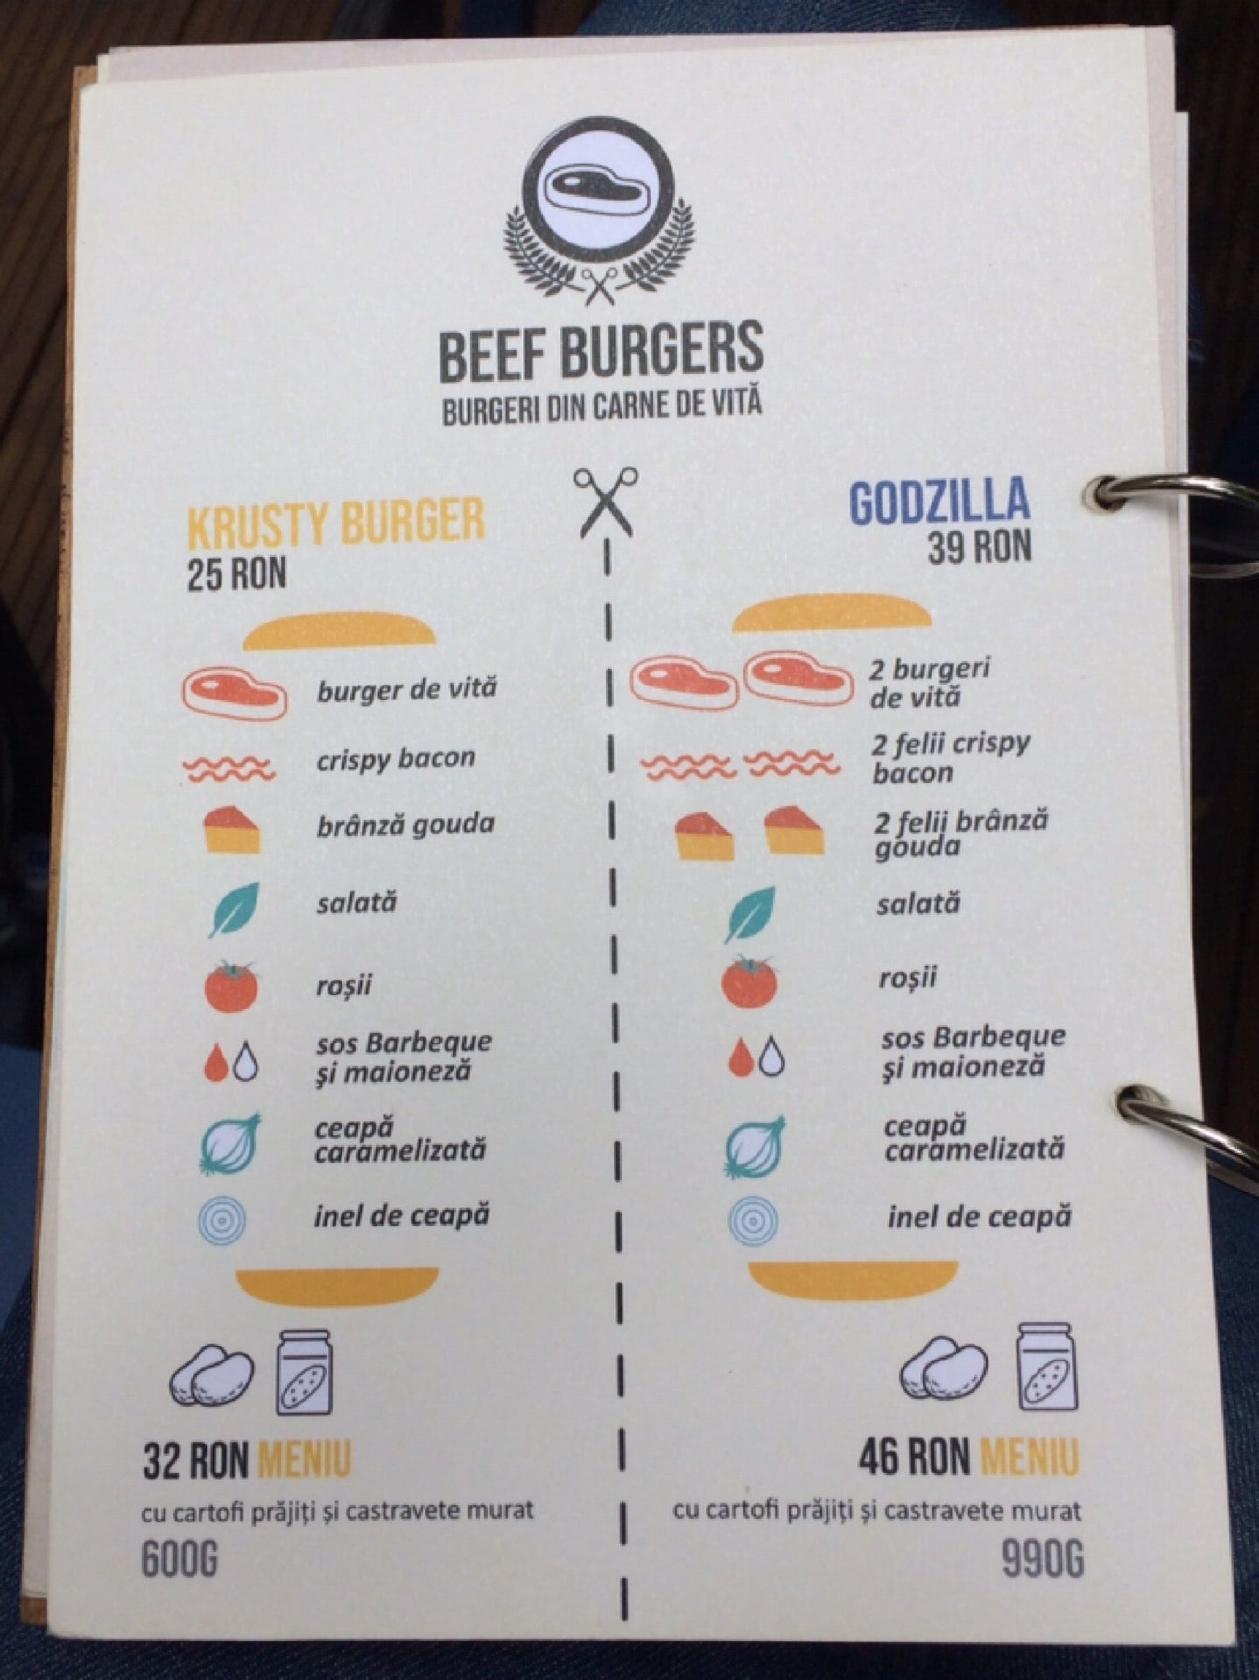 BEEF BURGERS
BURGERI DIN CARNE DE VITĂ
KRUSTY BURGER
25 RON
burger de vită
crispy bacon
brânză gouda
salată
roșii
sos Barbeque
și maioneză
ceapă
caramelizată
inel de ceapă
32 RON MENIU
cu cartofi prăjiți și castravete murat
600G
GODZILLA
39 RON
2 burgeri
de vită
2 felii crispy
bacon
2 felii brânză
gouda
salată
roșii
sos Barbeque
și maioneză
ceapă
caramelizată
inel de ceapă
46 RON MENIU
cu cartofi prăjiți și castravete murat
990G